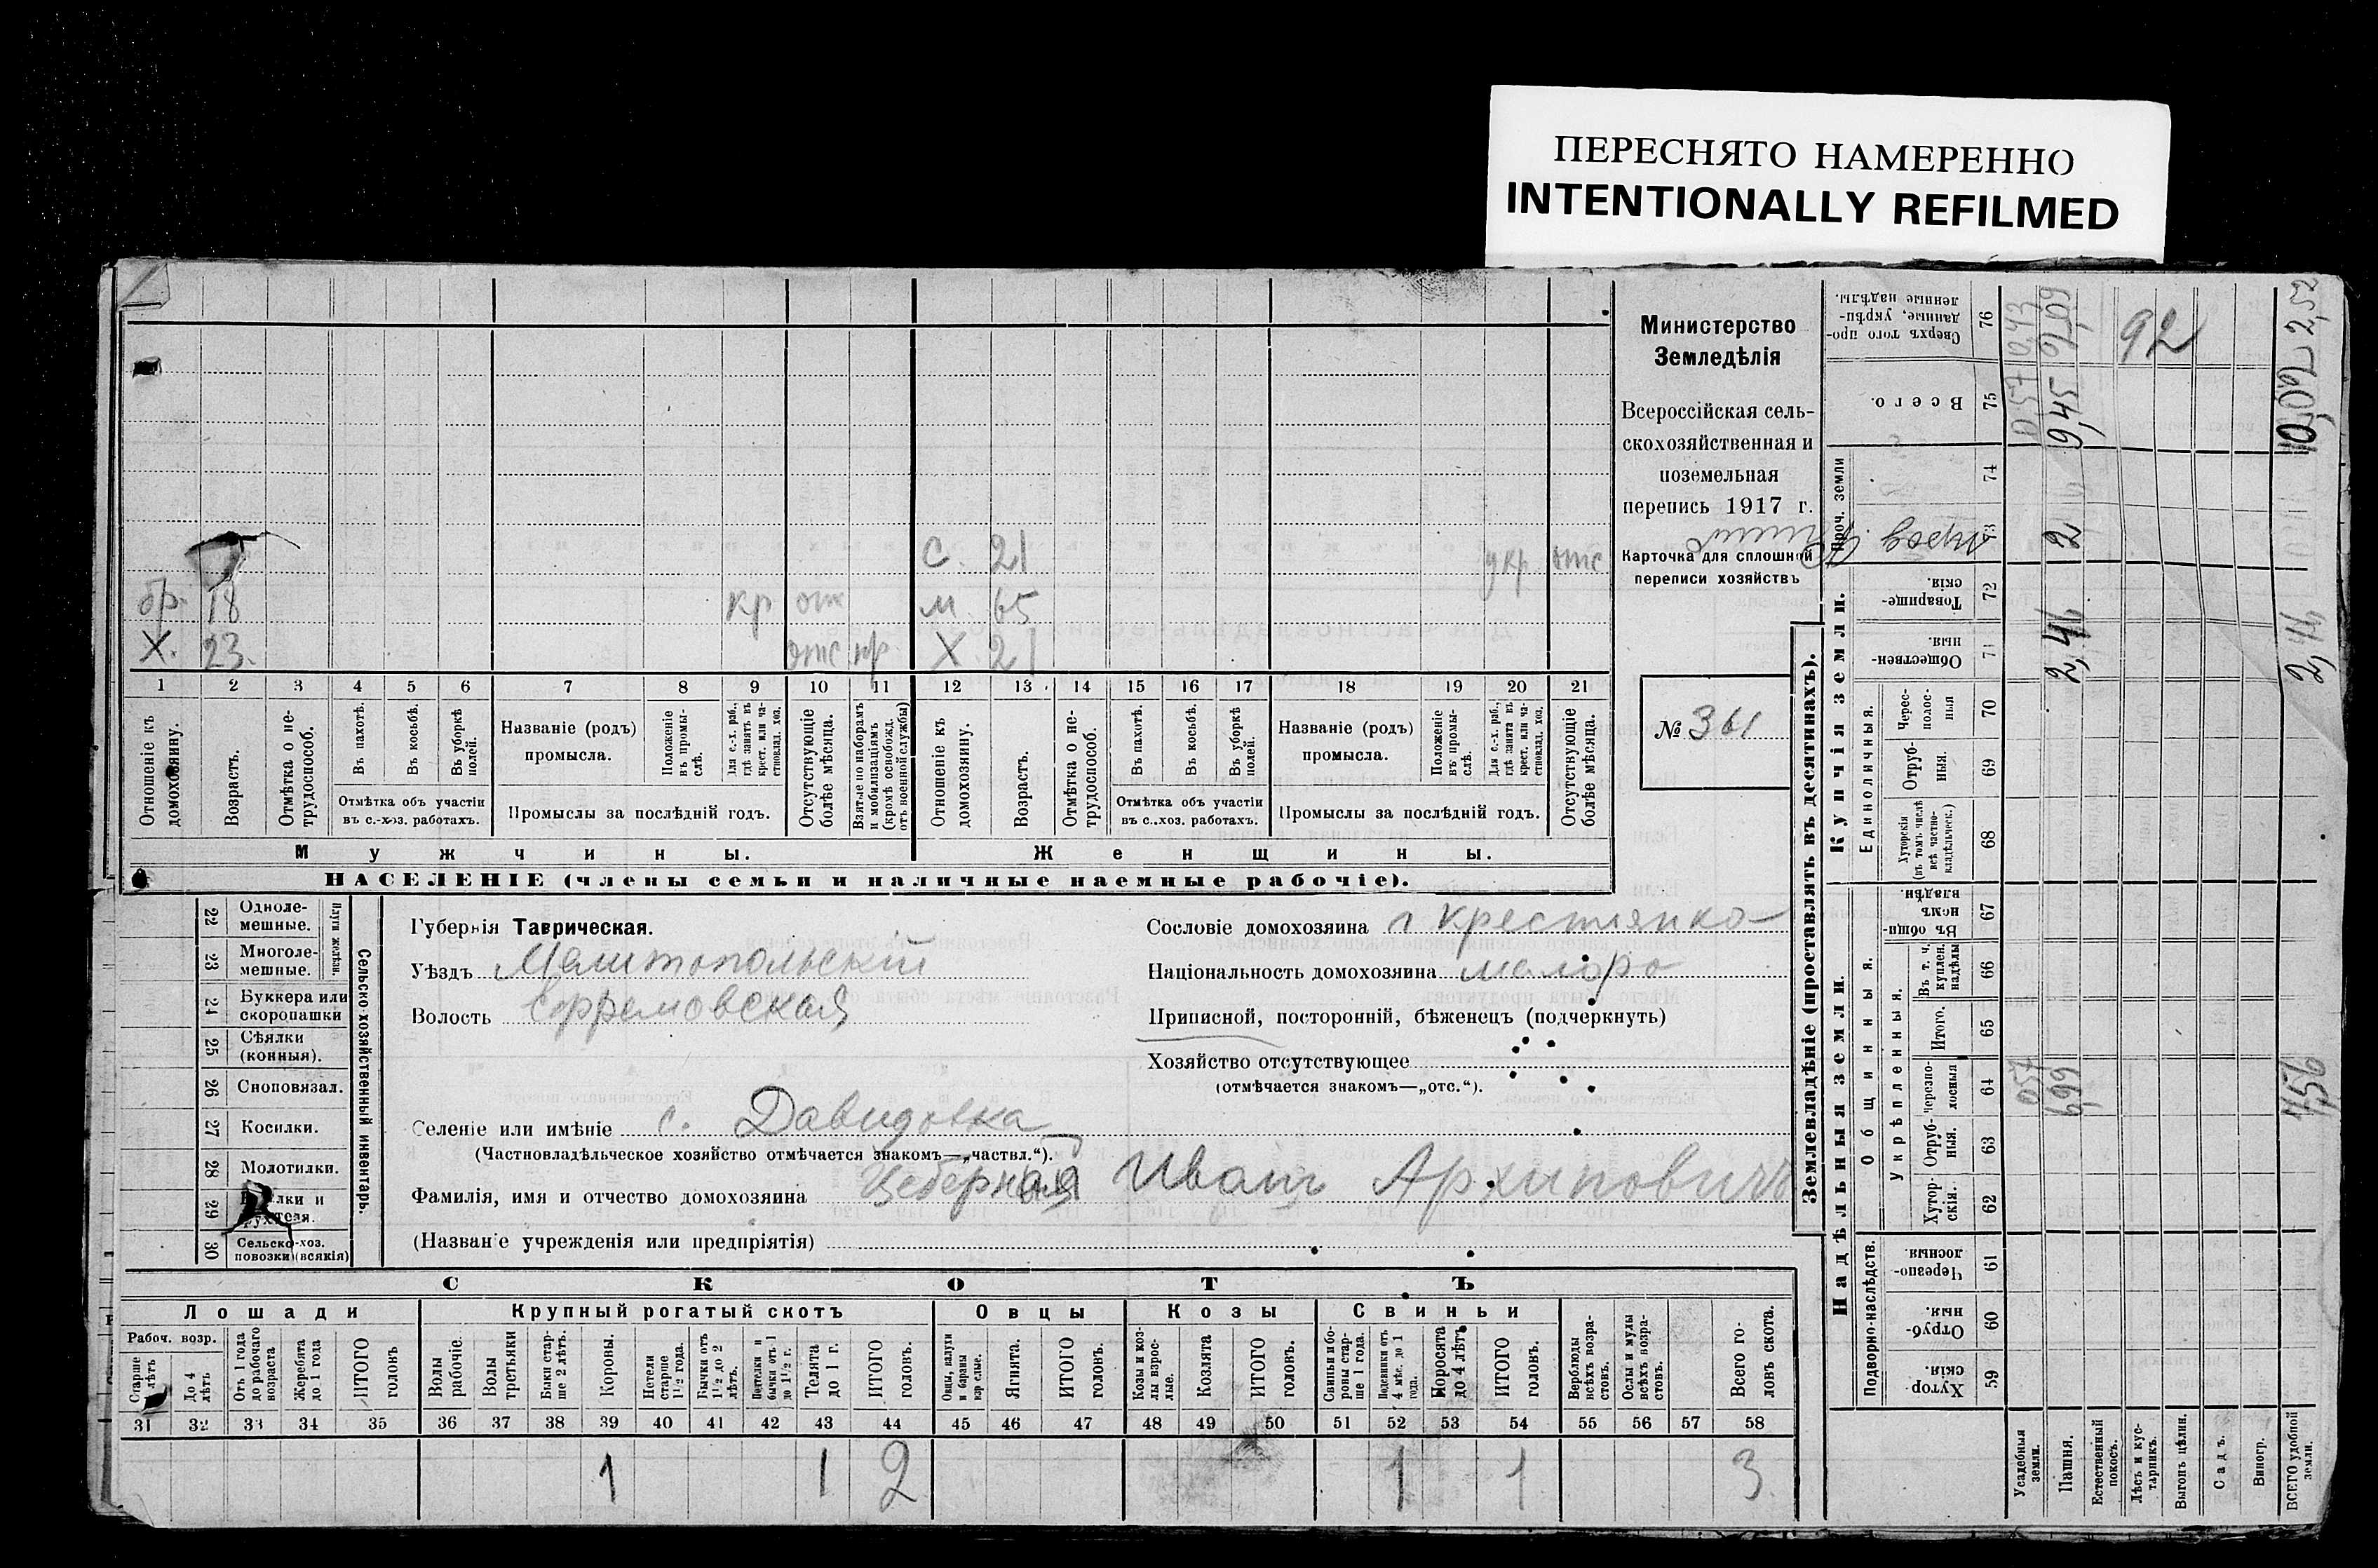 ПЕРЕСНЯТО НАМЕРЕННО
INTENTIONALLY REFILMED
Министерство
Земледѣлія
Всероссійская сель-
скохозяйственная и
поземельная
перепись 1917 г.
Карточка для сплошной
переписи хозяйствъ
№ 361
С. 21 укр отс
бр. 18 кр отс м. 65
Х. 23. отс. кр. Х 21
1 2 3 4 5 6 7 8 9 10 11 12 13 14 15 16 17 18 19 20 21
Отношеніе къ домохозяину.
Возрастъ.
Отмѣтка о не-трудоспособ.
Въ пахотѣ.
Въ косьбѣ.
Въ уборкѣ полей.
Отмѣтка объ участіи
въ с.-хоз. работахъ.
Названіе (родъ)
промысла.
Положеніе въ промы-слѣ.
Для с.-х. раб., гдѣ занятъ въ крест. или ча-стновлад. хоз.
Промыслы за послѣдній годъ.
Отсутствующіе болѣе мѣсяца.
Взятые по наборамъ и мобилизаціямъ (кромѣ освобожд. отъ военной службы)
Отношеніе къ домохозяину.
Возрастъ.
Отмѣтка о не-трудоспособ.
Въ пахотѣ.
Въ косьбѣ.
Въ уборкѣ полей.
Отмѣтка объ участіи
въ с.-хоз. работахъ.
Названіе (родъ)
промысла.
Положеніе въ промы-слѣ.
Для с.-х. раб., гдѣ занятъ въ крест. или ча-стновлад. хоз.
Промыслы за послѣдній годъ.
Отсутствующіе болѣе мѣсяца.
Мужчины.
Женщины.
НАСЕЛЕНІЕ (члены семьи и наличные наемные рабочіе).
22 Одноле-мешные.
23 Многоле-мешные.
Плуги желѣзн.
24 Буккера или скоропашки
25 Сѣялки (конныя).
26 Сноповязал.
27 Косилки.
28 Молотилки.
29
30 Сельско-хоз. повозки (всякія)
Сельско-хозяйственный инвентарь.
Губернія Таврическая.
Уѣздъ Мелитопольскій
Волость Ефремовская
Селеніе или имѣніе с. Давидовка
(Частновладѣльческое хозяйство отмѣчается знакомъ—„частвл.“).
Фамилія, имя и отчество домохозяина Иванъ Архиповичъ
(Названіе учрежденія или предпріятія)
Сословіе домохозяина
Національность домохозяина малоро
Приписной, посторонній, бѣженецъ (подчеркнуть)
Хозяйство отсутствующее
(отмѣчается знакомъ—„отс.“).
СКОТЪ
Лошади
Крупный рогатый скотъ
Овцы
Козы
Свиньи
Рабоч. возр.
Старше лѣтъ
До 4 лѣтъ
Отъ 1 года до рабочаго возраста
Жеребята до 1 года
ИТОГО головъ
Волы рабочіе.
Волы третьяки
Быки стар-ше 2 лѣтъ.
Коровы.
Нетели старше 1½ года.
Бычки отъ 1½ до 2 лѣтъ.
бычки отъ 1 до 1½ г.
Телята до 1 г.
ИТОГО головъ.
Овцы, валухи и бараны взрослые.
Ягнята.
ИТОГО головъ.
Козы и коз-лы взрос-лые.
Козлята
ИТОГО головъ.
Свиньи и бо-ровы стар-ше 1 года.
Подсвинки отъ 4 мѣс. до 1 года.
Поросята до 4
ИТОГО головъ.
Верблюды всѣхъ возра-стовъ.
Ослы и мулы всѣхъ возра-стовъ.
Всего го-ловъ скота.
31 32 33 34 35 36 37 38 39 40 41 42 43 44 45 46 47 48 49 50 51 52 53 54 55 56 57 58
1 1 2 1 1 3
Землевладѣніе (проставлять въ десятинахъ).
Надѣльныя земли.
Купчія земли.
Проч. земли
Подворно-наслѣдств.
Общинныя.
Укрѣпленныя.
Единоличныя.
Хутор-скія 59
Отруб-ныя. 60
Черезпо-лосныя. 61
Хутор-скія. 62
Отруб-ныя. 63
Черезпо-лосныя 64
Итого. 65
Въ т. ч. куплен. надѣлы 66
Въ общин-номъ владѣн. 67
Хуторскія (въ томъ числѣ всѣ частно-владѣльческ.) 68
Отруб-ныя. 69
Черес-полос-ныя 70
Обществен-ныя 71
Товарище-скія. 72
73
74
Всего. 75
Сверхъ того про-данные, укрѣп-ленные надѣлы. 76
Усадебныя земли. 0,57 0,57 0,43
Пашня. 6,99 2,46 9,45
Естественный покосъ.
Лѣсъ и кус-тарникъ. 92
Выгонъ цѣлин.
Садъ.
Виногр.
ВСЕГО удобной земли. 7,56 10,02 2,52